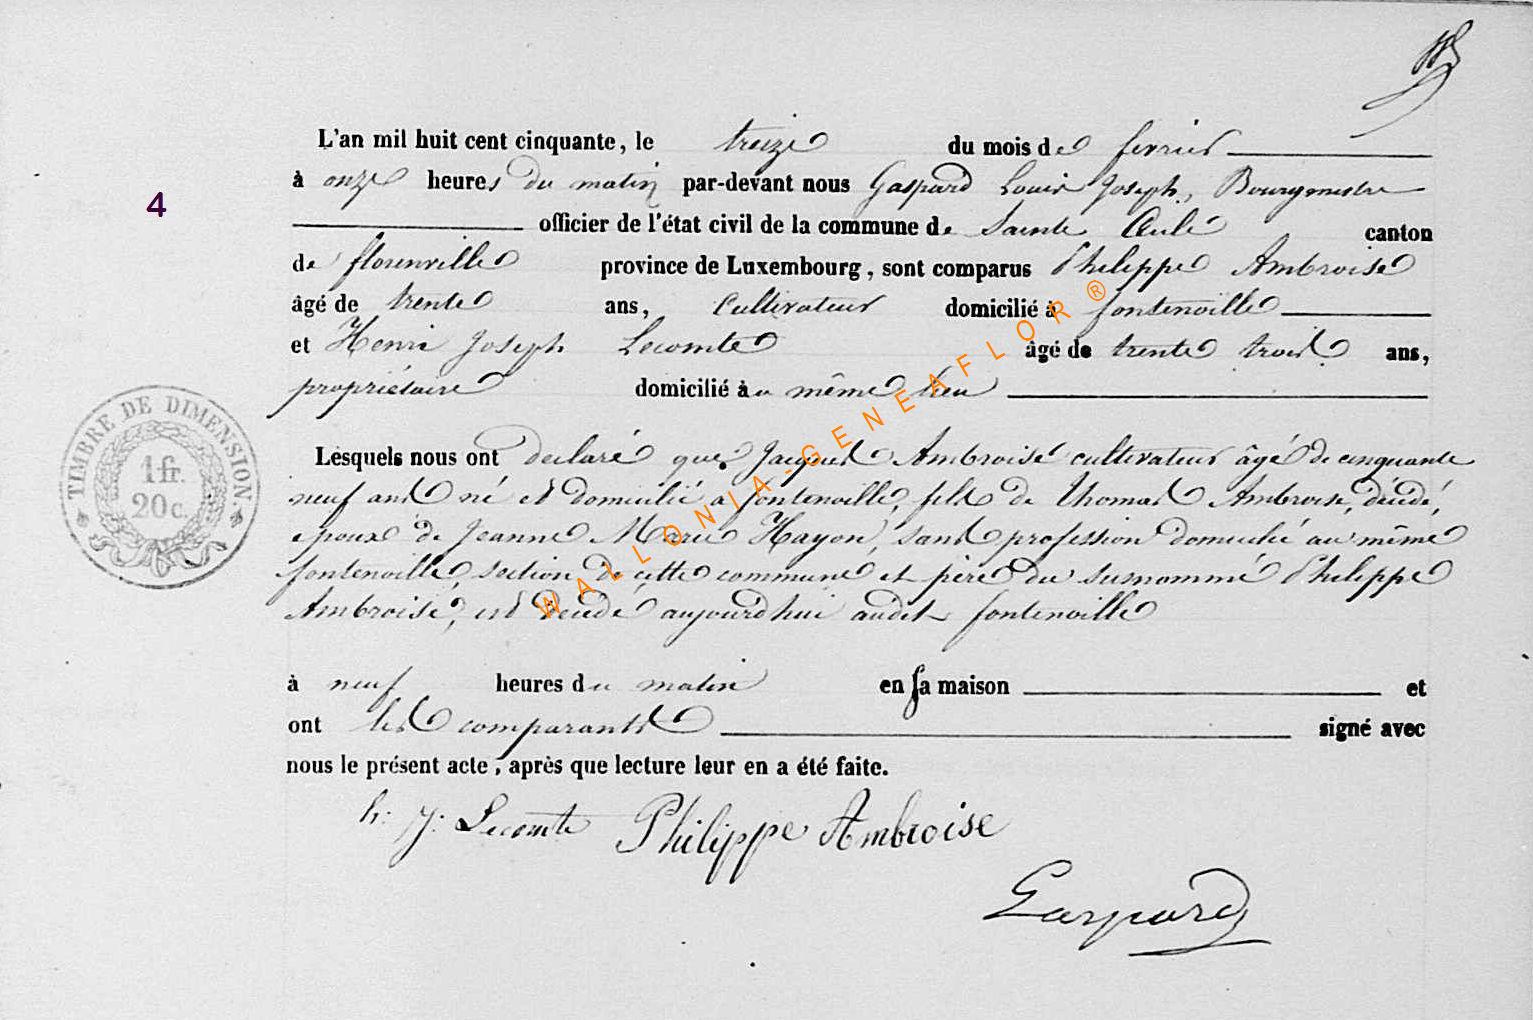 L'an mil huit cent cinquante, le treize du mois de fevrier
4
à onze heures du matin par-devant nous Gaspard Louis Joseph, Bourgmestre
officier de l'état civil de la commune de Sainte Cécile canton
de florenville province de Luxembourg, sont comparus Philippe Ambroise
âgé de trente ans, Cultivateur domicilié à fontenoille
et Henri Joseph Lecomte âgé de trente trois ans,
propriétaire domicilié au même lieu
Lesquels nous ont declaré que Jacques Ambroise cultivateur âgé de cinquante
neuf ans né et domicilié à fontenoille, fils de Thomas Ambroise, décédé,
epoux de Jeanne Marie Hayon, sans profession domicilié au même
fontenoille, section de cette commune et père du surnommé Philippe
Ambroise, est décédé aujourd'hui audit fontenoille
à neuf heures du matin en sa maison et
ont les comparants signé avec
nous le présent acte, après que lecture leur en a été faite.
h: J: Lecomte Philippe Ambroise
Gaspard
TIMBRE DE DIMENSION.
1 fr.
20 c.
WALLONIA-GENEAFLOR ®